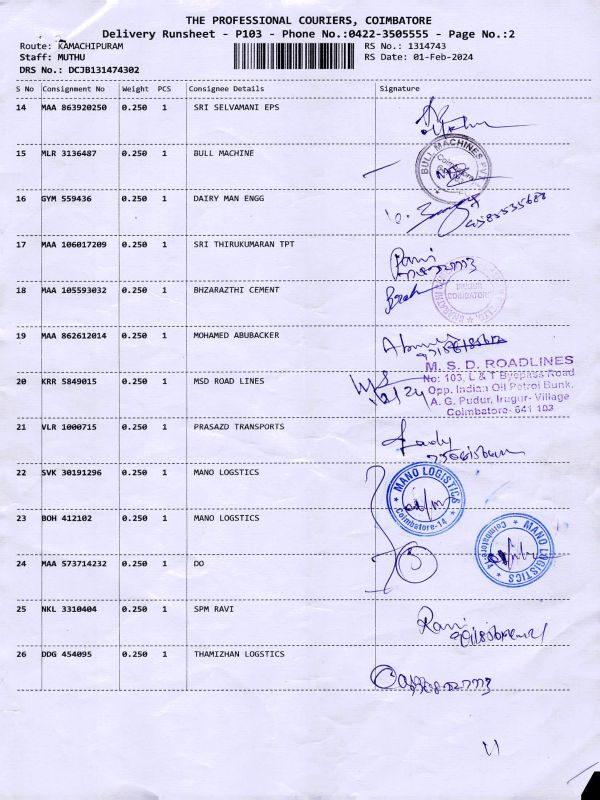 THE PROFESSIONAL COURIERS, COIMBATORE
Delivery Runsheet - P103 - Phone No.:0422-3505555 - Page No.:2
Route: KAMACHIPURAM RS No.: 1314743
Staff: MUTHU RS Date: 01-Feb-2024
DRS No.: DCJB131474302
S No Consignment No Weight PCS Consignee Details Signature
14 MAA 863920250 0.250 1 SRI SELVAMANI EPS
15 MLR 3136487 0.250 1 BULL MACHINE
BULL MACHINES PVT
16 GYM 559436 0.250 1 DAIRY MAN ENGG
17 MAA 106017209 0.250 1 SRI THIRUKUMARAN TPT
Rami
18 MAA 105593032 0.250 1 BHZARAZTHI CEMENT
IRUGUR
COIMBATORE
19 MAA 862612014 0.250 1 MOHAMED ABUBACKER
20 KRR 5849015 0.250 1 MSD ROAD LINES
M. S. D. ROADLINES
No: 103, L & T Byepass Road
Opp. Indian Oil Petrol Bunk,
A. G. Pudur, Irugur- Village
Coimbatore- 641 103
21 VLR 1000715 0.250 1 PRASAZD TRANSPORTS
22 SVK 30191296 0.250 1 MANO LOGSTICS
MANO LOGISTICS
Coimbatore-14
23 BOH 412102 0.250 1 MANO LOGSTICS
MANO LOGISTICS
Coimbatore-
24 MAA 573714232 0.250 1 DO
25 NKL 3310404 0.250 1 SPM RAVI
Ravi
26 DDG 454095 0.250 1 THAMIZHAN LOGSTICS